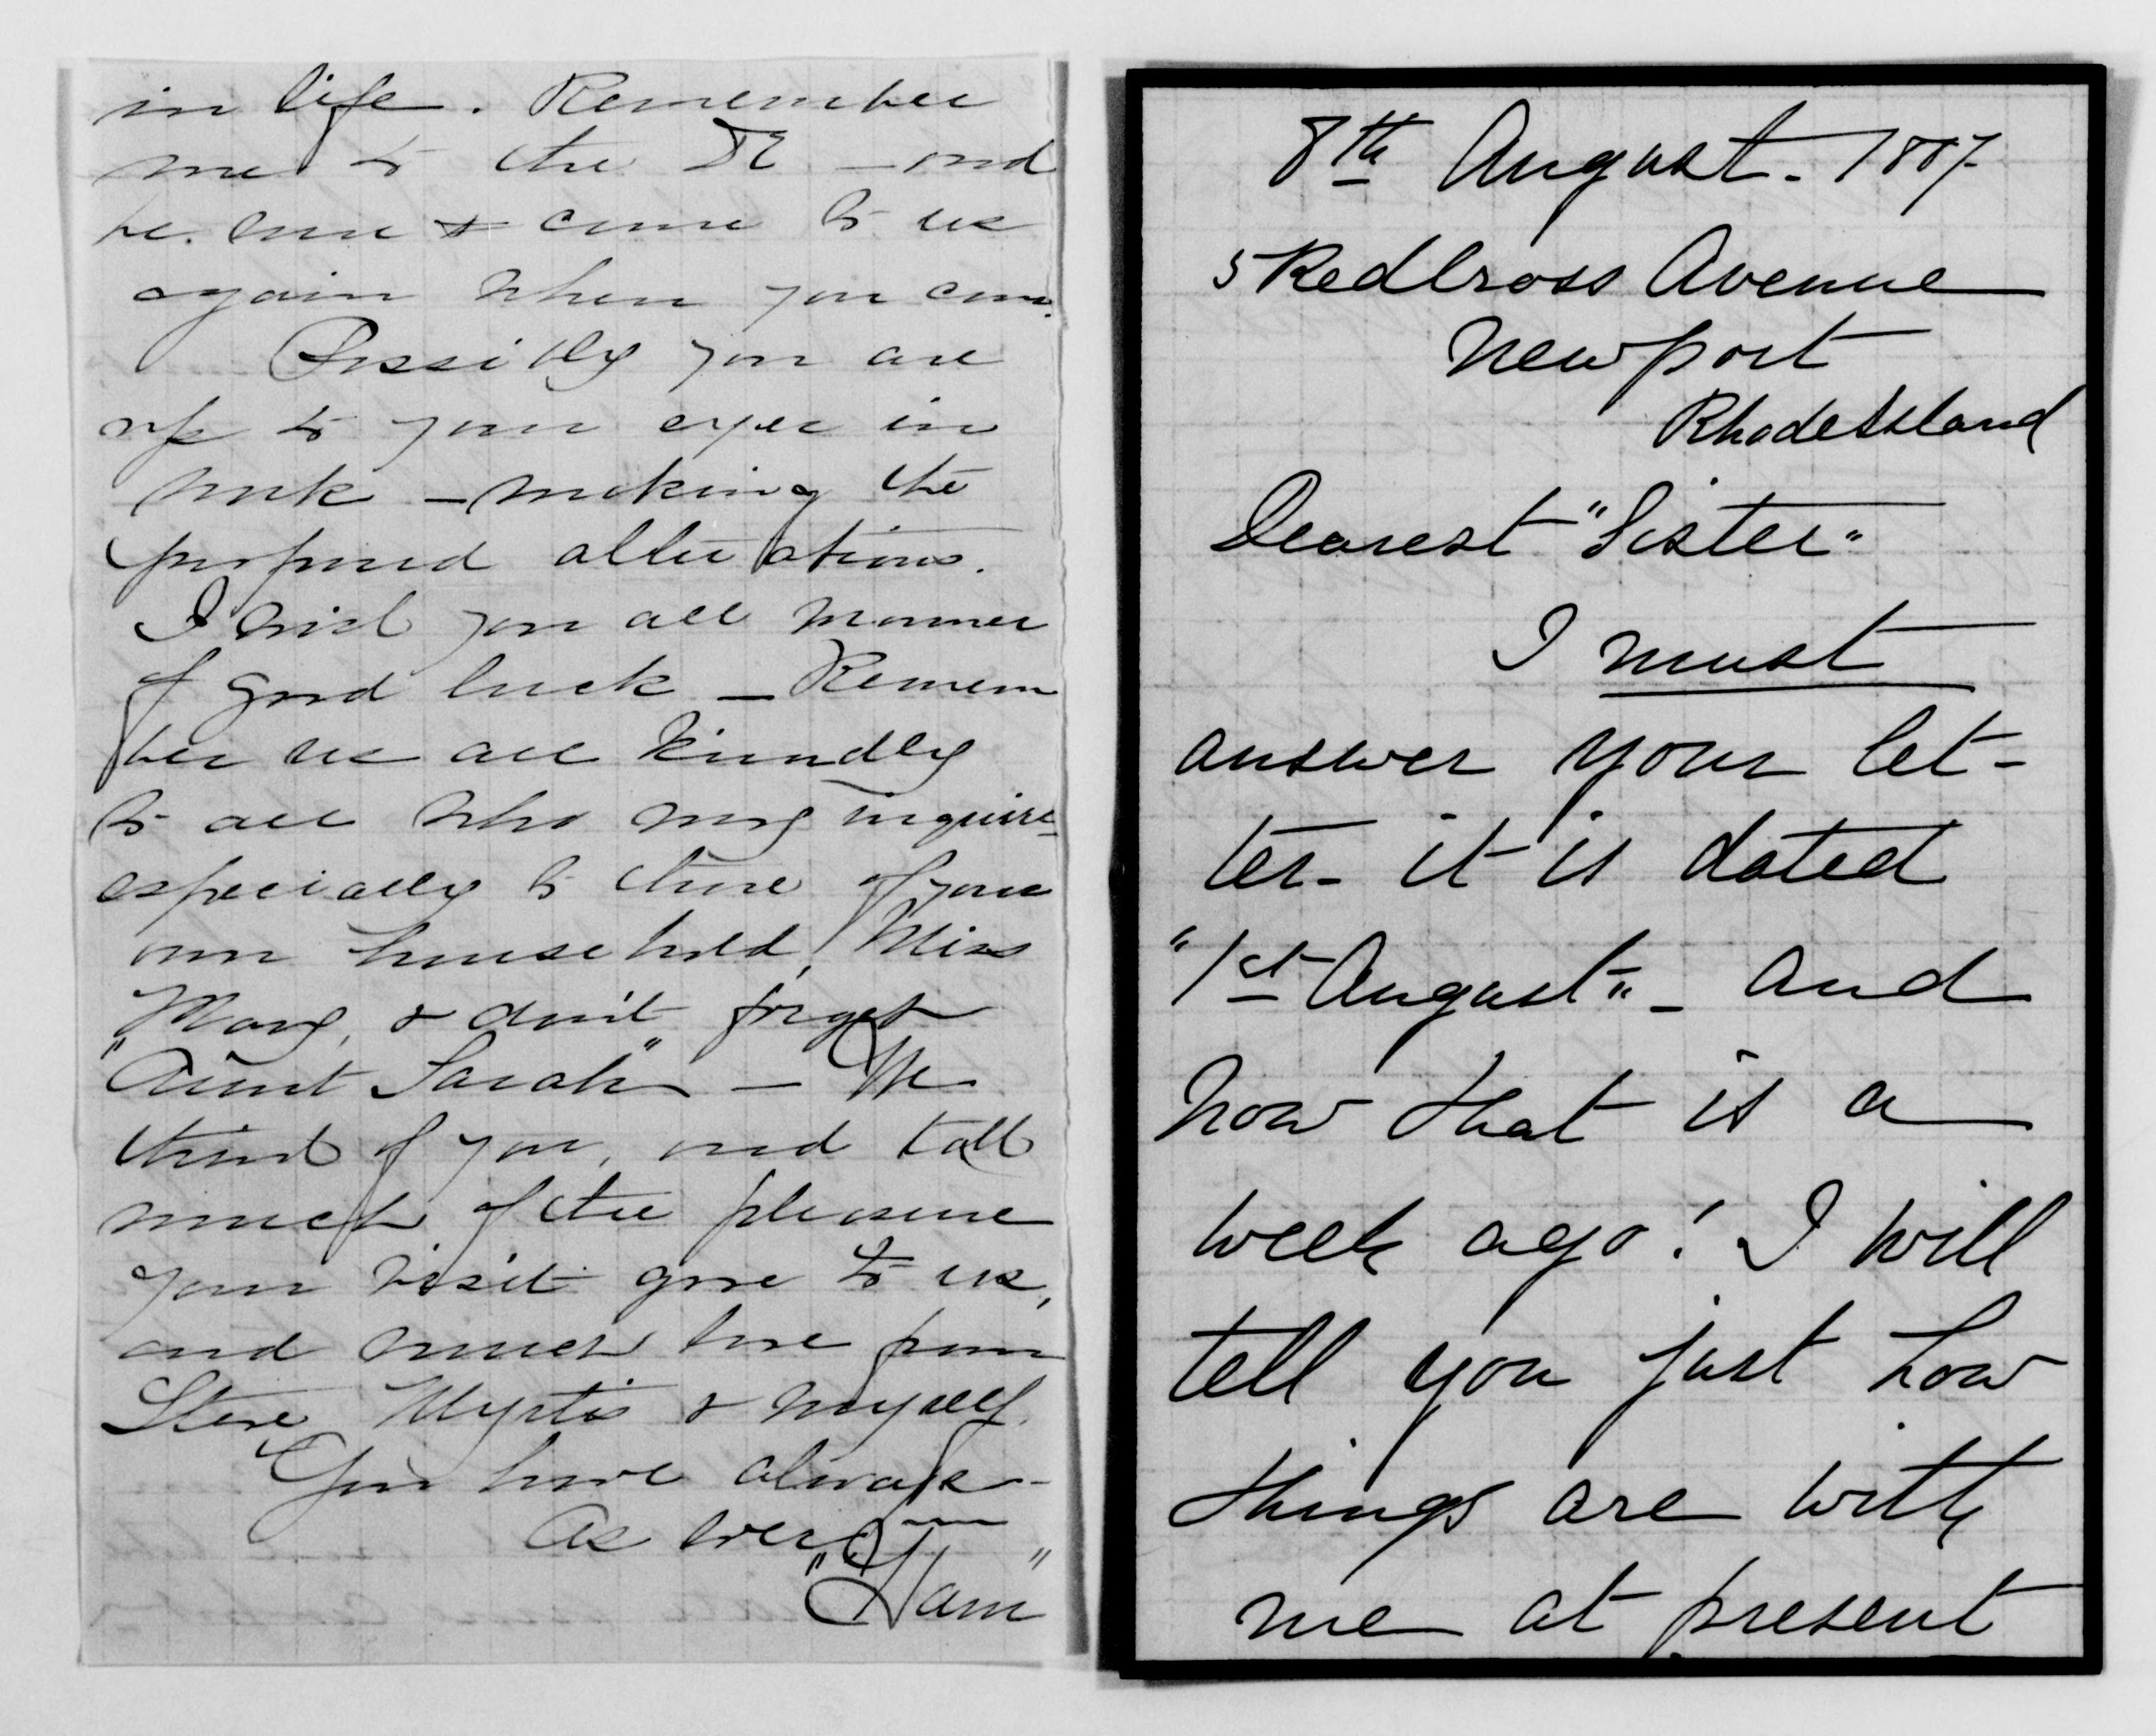 in life. Remember
me to the Dr — and
be sure & come to us
again when you can.
Possibly you are
up to your eyes in
work — making the
proposed alterations.
I wish you all manner
of good luck — Remem
ber us all kindly
to all who may inquire —
especially to those of your
own household, Miss
Mary, & don't forget
"Aunt Sarah" — We
think of you, and talk
much of the pleasure
your visit gave to us,
and much love from
Steve, Myrtis & myself.
You have always —
As ever —
"Ham"
8th August. 1887
5 Redcross Avenue
Newport
Rhode Island
Dearest "Sister"
I must
answer your let-
ter - it is dated
"1st August" - and
now that is a
week ago! I will
tell you just how
things are with
me at present